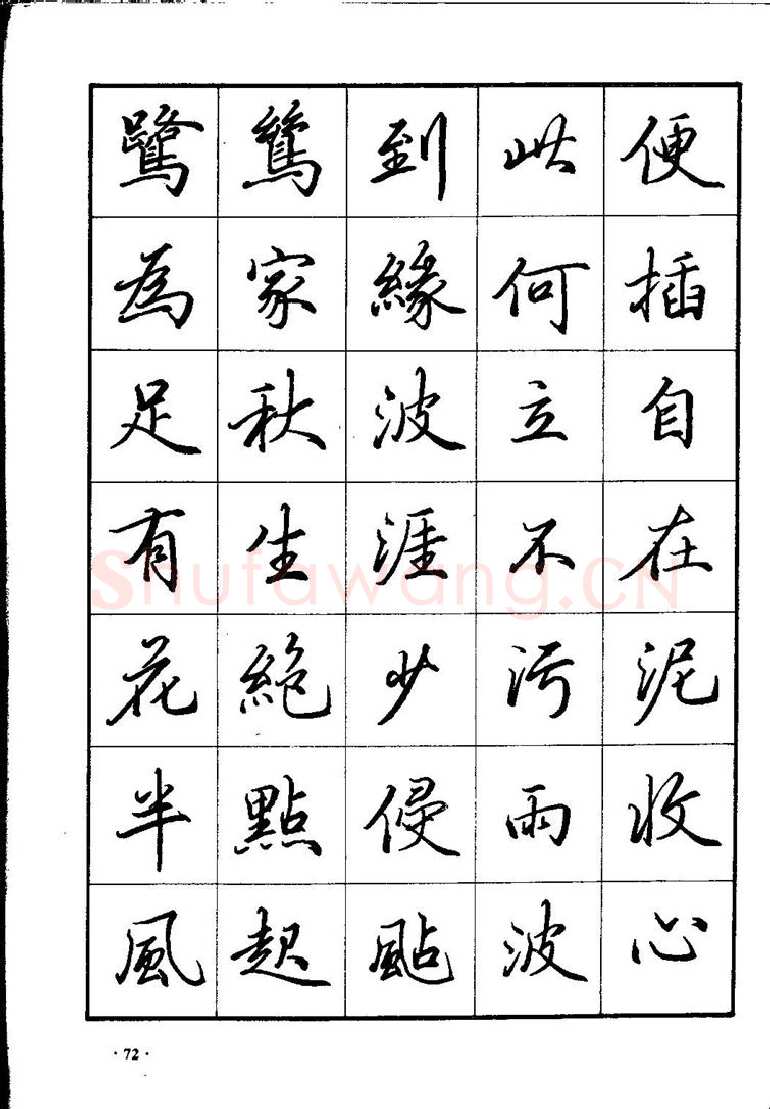 鷺鷥到此便
為家緣何插
足秋波立自
有生涯不在
花絕少污泥
半點侵雨收
風起颭波心
Shufawang.CN
·72·